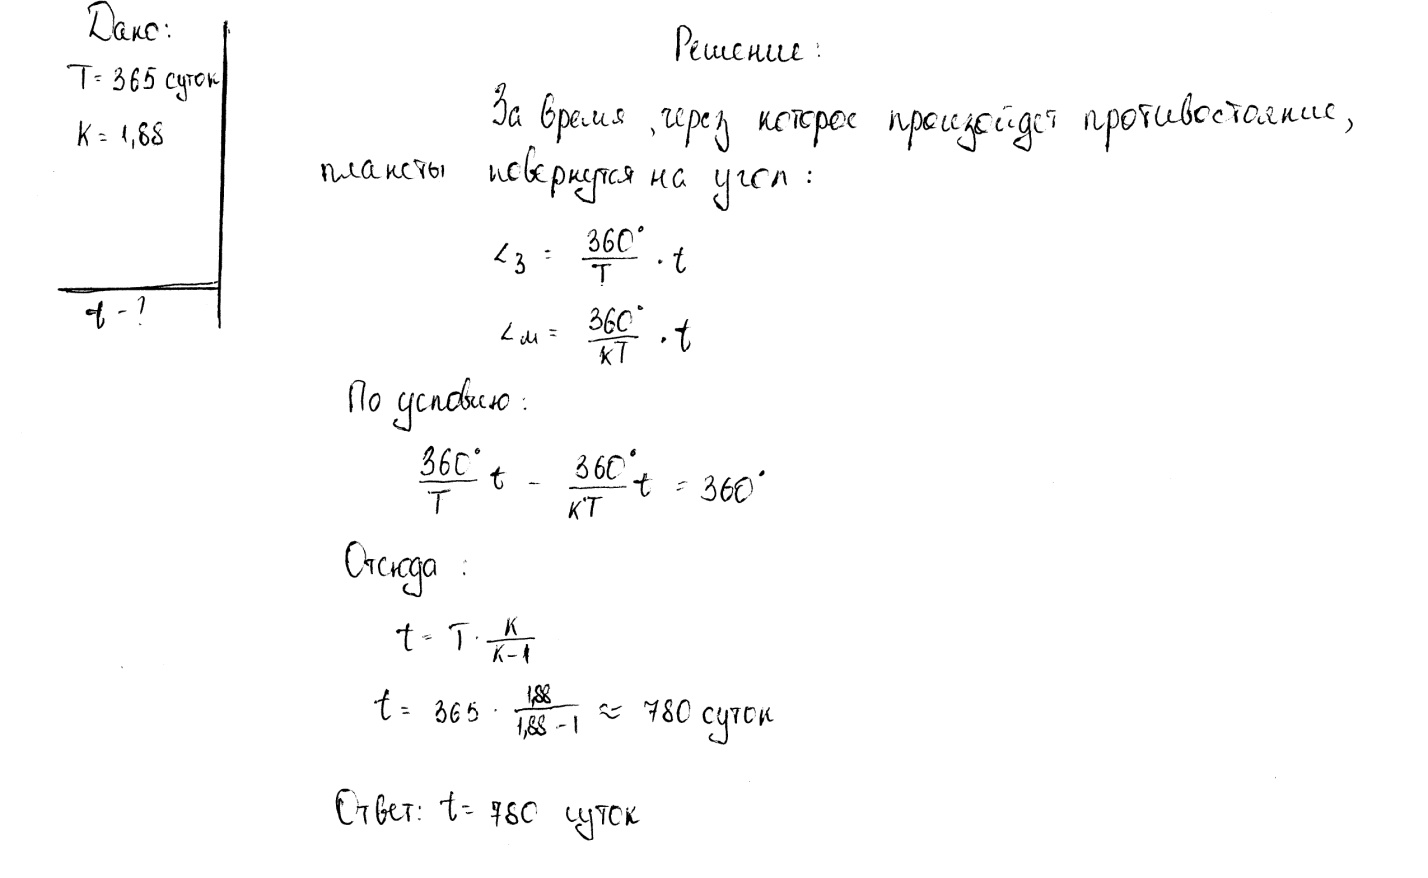 Дано:
T = 365 суток
K = 1,88
t - ?
Решение:
За время, через которое произойдет противостояние,
планеты повернутся на угол:
∠з = 360°/T · t
∠м = 360°/KT · t
По условию:
360°/T t - 360°/KT t = 360°
Отсюда:
t = T · K/K-1
t = 365 · 1,88/1,88-1 ≈ 780 суток
Ответ: t = 780 суток